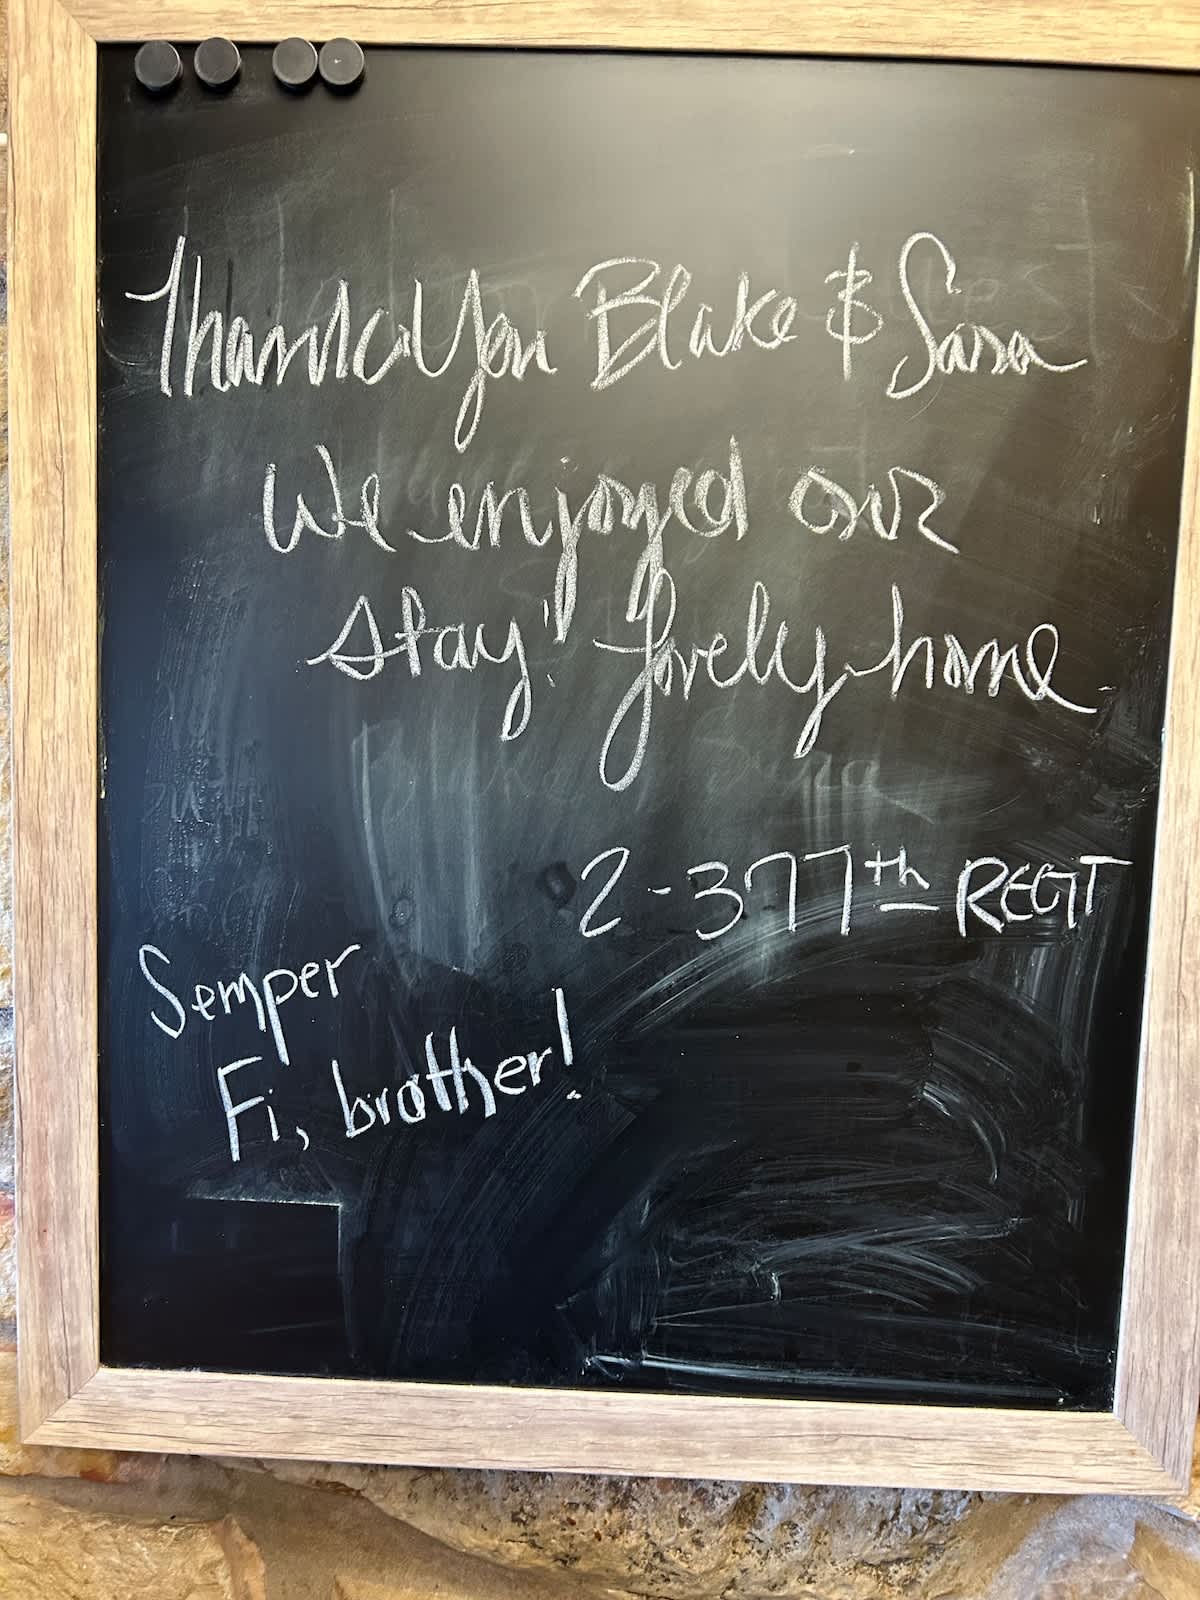 Thank You Blake & Sara
We enjoyed our
stay! Lovely home
2-377th REGT
Semper
Fi, brother!